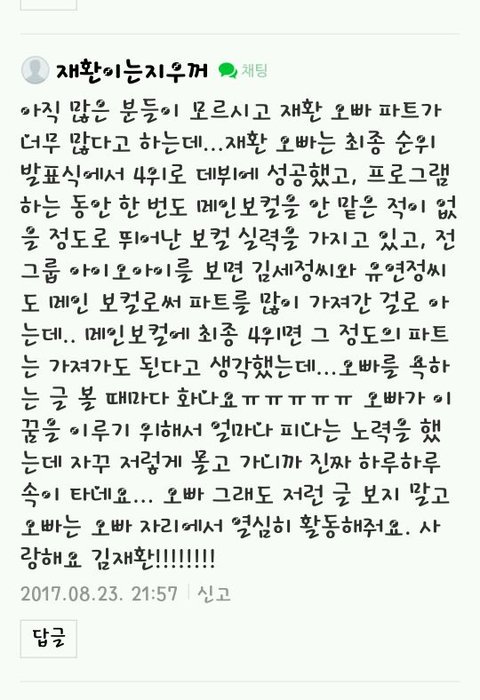 재환이는지우꺼 채팅
아직 많은 분들이 모르시고 재환 오빠 파트가
너무 많다고 하는데...재환 오빠는 최종 순위
발표식에서 4위로 데뷔에 성공했고, 프로그램
하는 동안 한 번도 메인보컬을 안 맡은 적이 없
을 정도로 뛰어난 보컬 실력을 가지고 있고, 전
그룹 아이오아이를 보면 김세정씨와 유연정씨
도 메인 보컬로써 파트를 많이 가져간 걸로 아
는데.. 메인보컬에 최종 4위면 그 정도의 파트
는 가져가도 된다고 생각했는데...오빠를 욕하
는 글 볼 때마다 화나요ㅠㅠㅠㅠㅠ 오빠가 이
꿈을 이루기 위해서 얼마나 피나는 노력을 했
는데 자꾸 저렇게 몰고 가니까 진짜 하루하루
속이 타네요... 오빠 그래도 저런 글 보지 말고
오빠는 오빠 자리에서 열심히 활동해줘요. 사
랑해요 김재환!!!!!!!!
2017.08.23. 21:57 신고
답글